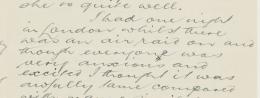 she is quite well.
I had one night
in London whilst there
was an air raid on and
though everyone was
very anxious and
excited I thought it was
awfully tame compared